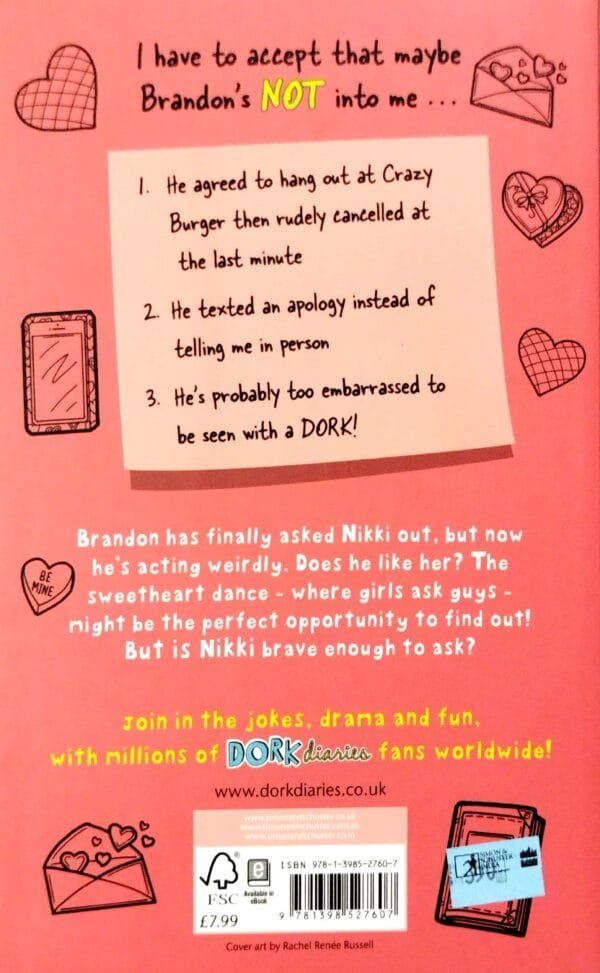 I have to accept that maybe
Brandon's NOT into me ...
1. He agreed to hang out at Crazy
Burger then rudely cancelled at
the last minute
2. He texted an apology instead of
telling me in person
3. He's probably too embarrassed to
be seen with a DORK!
Brandon has finally asked Nikki out, but now
he's acting weirdly. Does he like her? The
sweetheart dance - where girls ask guys -
might be the perfect opportunity to find out!
But is Nikki brave enough to ask?
BE
MINE
Join in the jokes, drama and fun,
with millions of DORK diaries fans worldwide!
www.dorkdiaries.co.uk
www.simonandschuster.co.uk
www.simonandschuster.com.au
www.simonandschuster.co.in
FSC
£7.99
e
Available in
eBook
ISBN 978-1-3985-2760-7
9 781398 527607
SIMON &
SCHUSTER
INDIA
Cover art by Rachel Renée Russell